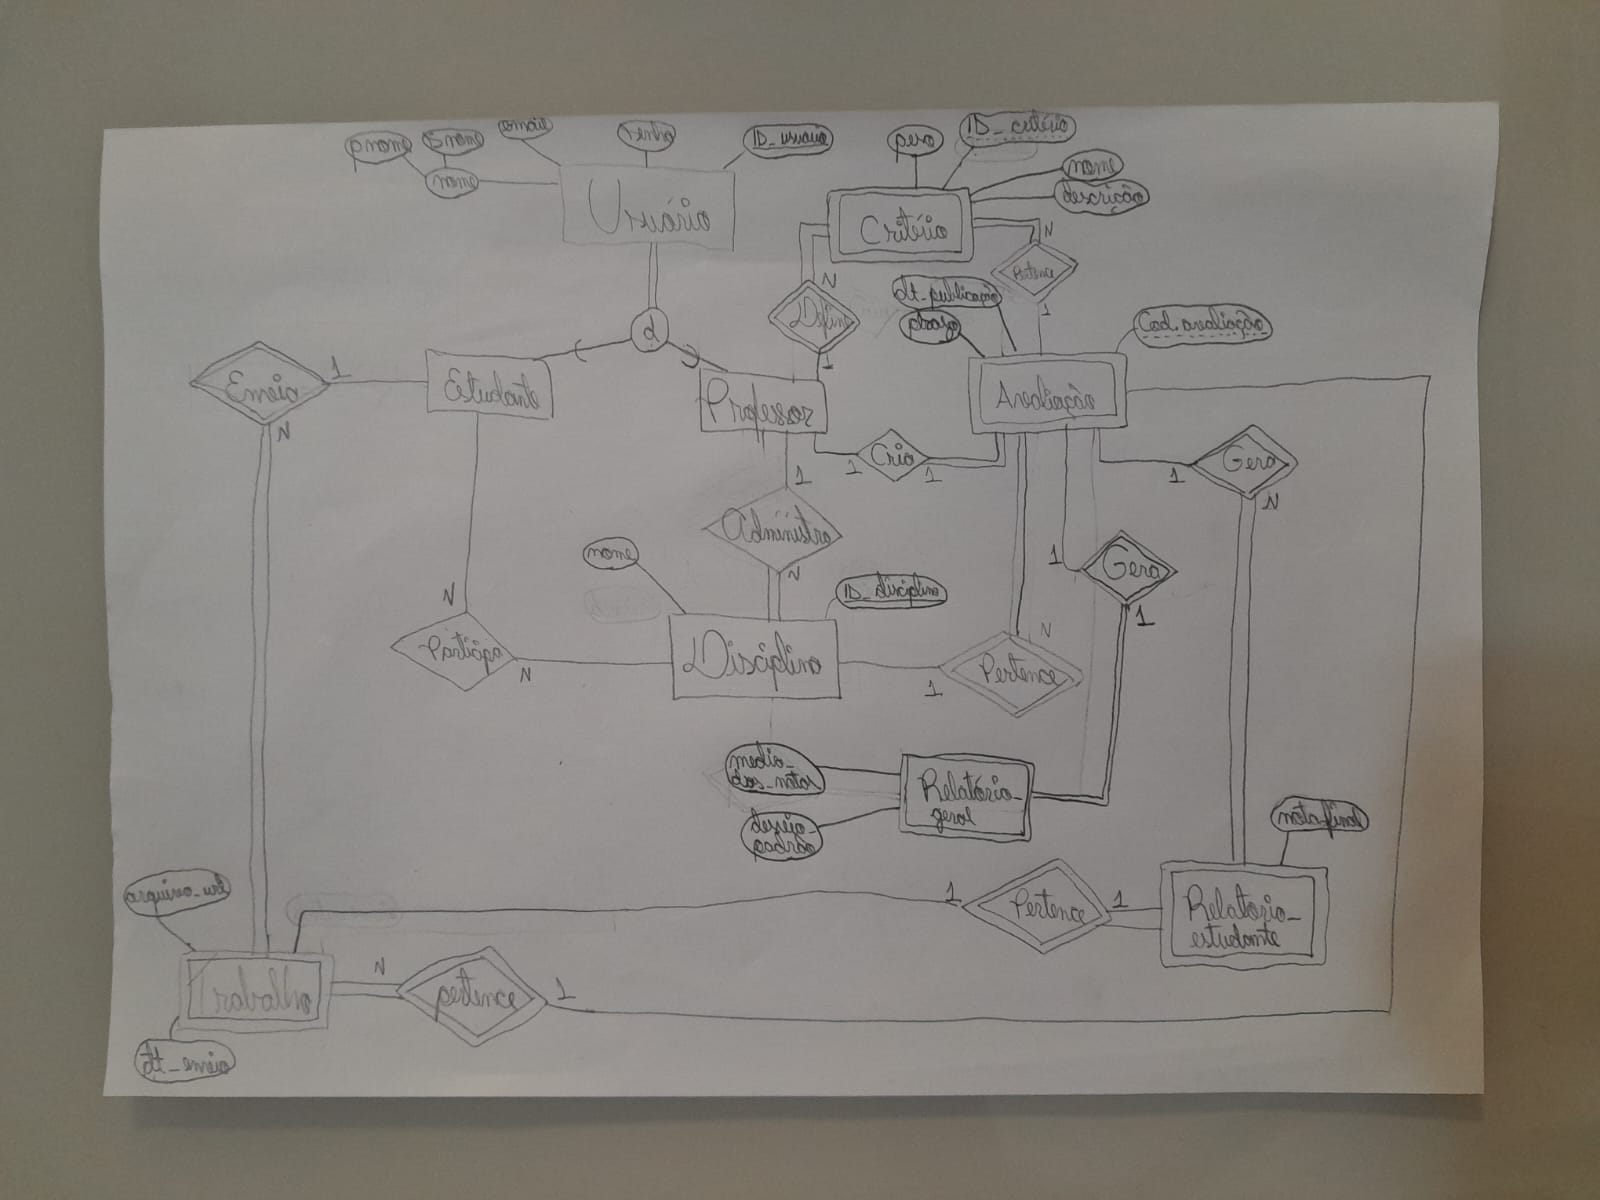 pnome
snome
email
senha
ID_usuario
nome
Usuário
peso
ID_critério
nome
descrição
Critério
N
Pertence
1
N
Define
1
dt_publicação
prazo
Cod.avaliação
d
Envia
1
N
Estudante
Professor
Avaliação
1
Cria
1
1
Gera
N
1
Administra
N
1
Gera
1
nome
ID_disciplina
N
Participa
N
Disciplina
1
N
Pertence
media_
das_notas
desvio_
padrão
Relatório_
geral
nota_final
arquivo_url
1
Pertence
1
Relatorio_
estudante
Trabalho
N
pertence
1
dt_envio